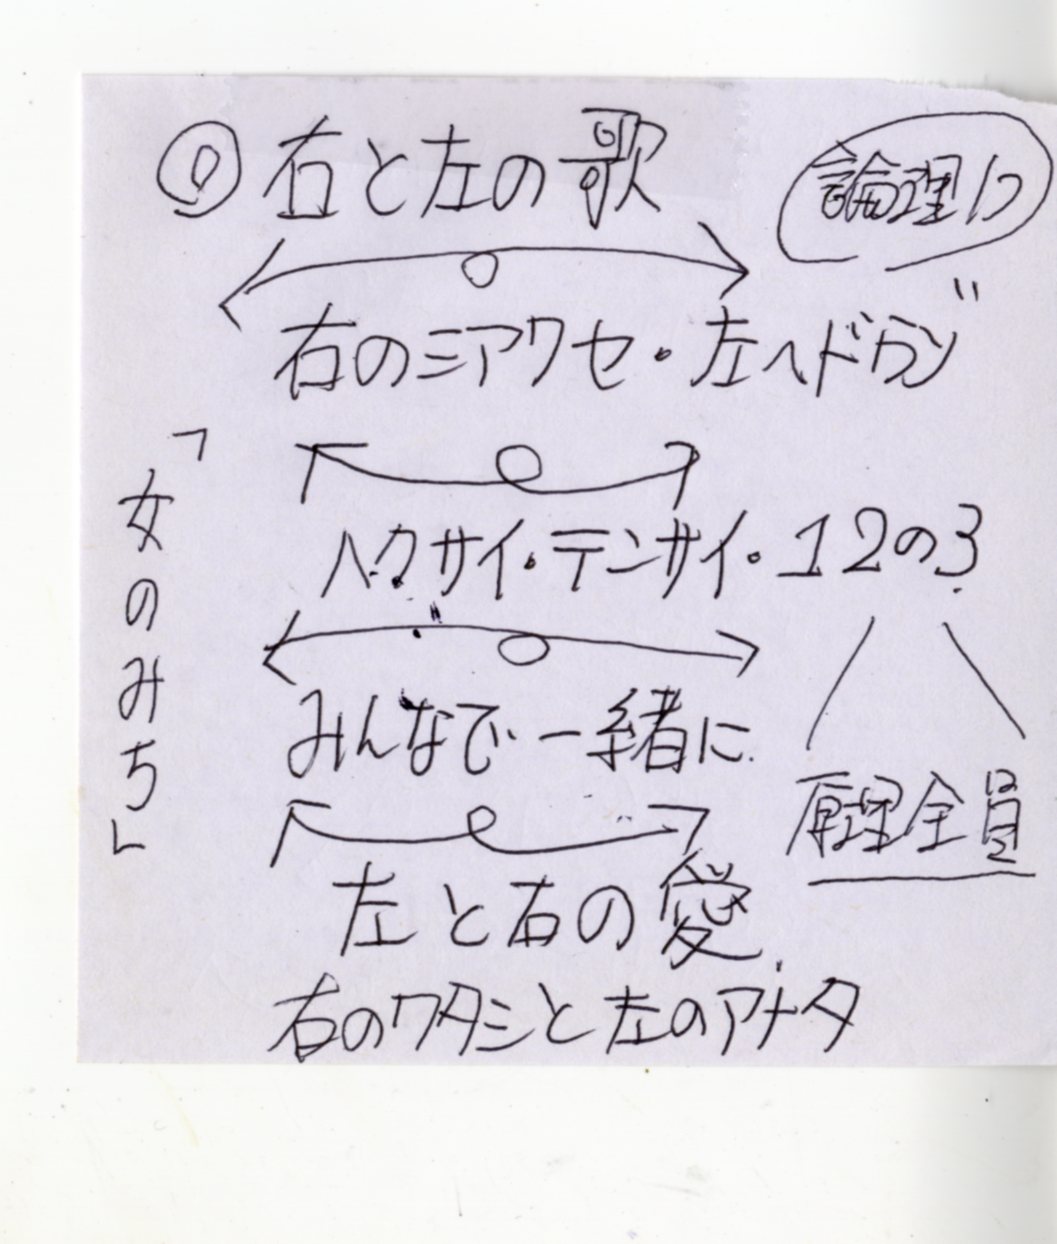 右と左の歌
論理
右のシアワセ・左へドウゾ
ハクサイ・テンサイ・12の3
みんなで一緒に
原理全員
左と右の愛
右のワタシと左のアナタ
「女のみち」